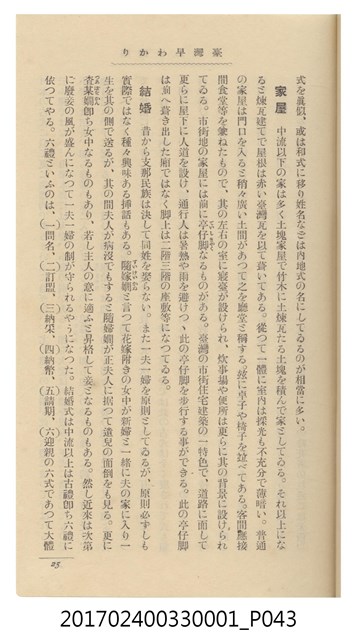 臺灣早わかり
式を眞似、或は和式に移り姓名などは內地式の名にしてゐるのが相當に多い。
家屋　中流以下の家は多く土塊家屋で竹木に土煉瓦たる土塊を積んで家としてゐる。それ以上にな
ると煉瓦建てで屋根は赤い臺灣瓦を以て葺いてある。從つて一體に室內は採光も不充分で薄暗い。普通
の家屋は門口を入ると稍々廣い土間があつて之を廳堂と稱する。玆に卓子や椅子を竝べてある。客間應接
間食堂等を兼ねたもので、其の左右の室に寢臺が設けられ、炊事場や便所は更らに其の背景に設けられ
てゐる。市街地の家屋には店前に亭仔脚なるものがある。臺灣の市街住宅建築の一特色で、道路に面して
更らに屋下に人道を設け、通行人は暑熱や雨を避けつゝ此の亭仔脚を步行する事ができる。此の亭仔脚
は店前へ葺き出した廂ではなく脚上は二階三階の座敷等になつてゐる。
結婚　昔から支那民族は決して同姓を娶らない。また一夫一婦を原則としてゐるが、原則必ずしも
實際ではなく種々興味ある挿話もある。隨嫁嫺と言つて花嫁附きの女中が新婦と一緒に夫の家に入り一
生を其の側で送るが、其の間夫人が病沒でもすると隨嫁嫺が正夫人に据つて遺兒の面倒をも見る。更に
査某嫺卽ち女中なるものもあり、若し主人の意に適ふと昇格して妾となるものもある。然し近來は次第
に廢妾の風が盛んになつて一夫一婦の制が守られるやうになつた。結婚式は中流以上は古禮卽ち六禮に
依つてやる。六禮といふのは、(一問名、(二訂盟、(三納采、(四納幣、(五請期、(六迎親の六式であつて大體
25
201702400330001_P043